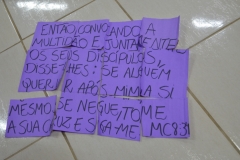 ENTÃO, CONVOCANDO A
MULTIDÃO E JUNTAMENTE
OS SEUS DISCÍPULOS,
DISSE-LHES: SE ALGUÉM
QUER VIR APÓS MIM, A SI
MESMO SE NEGUE, TOME
A SUA CRUZ E SIGA-ME. MC 8:34